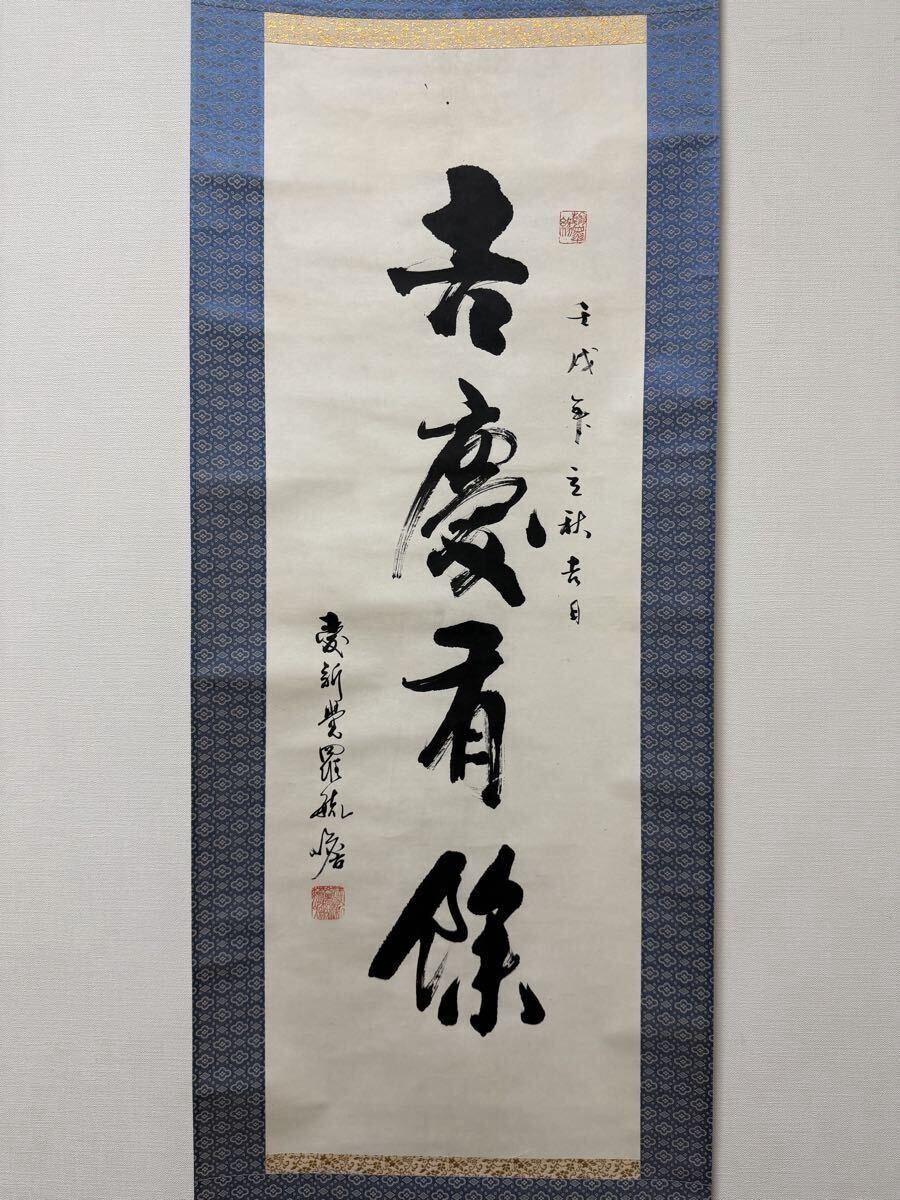 壬戌年立秋吉日
吉慶有餘
愛新覺羅毓嶦